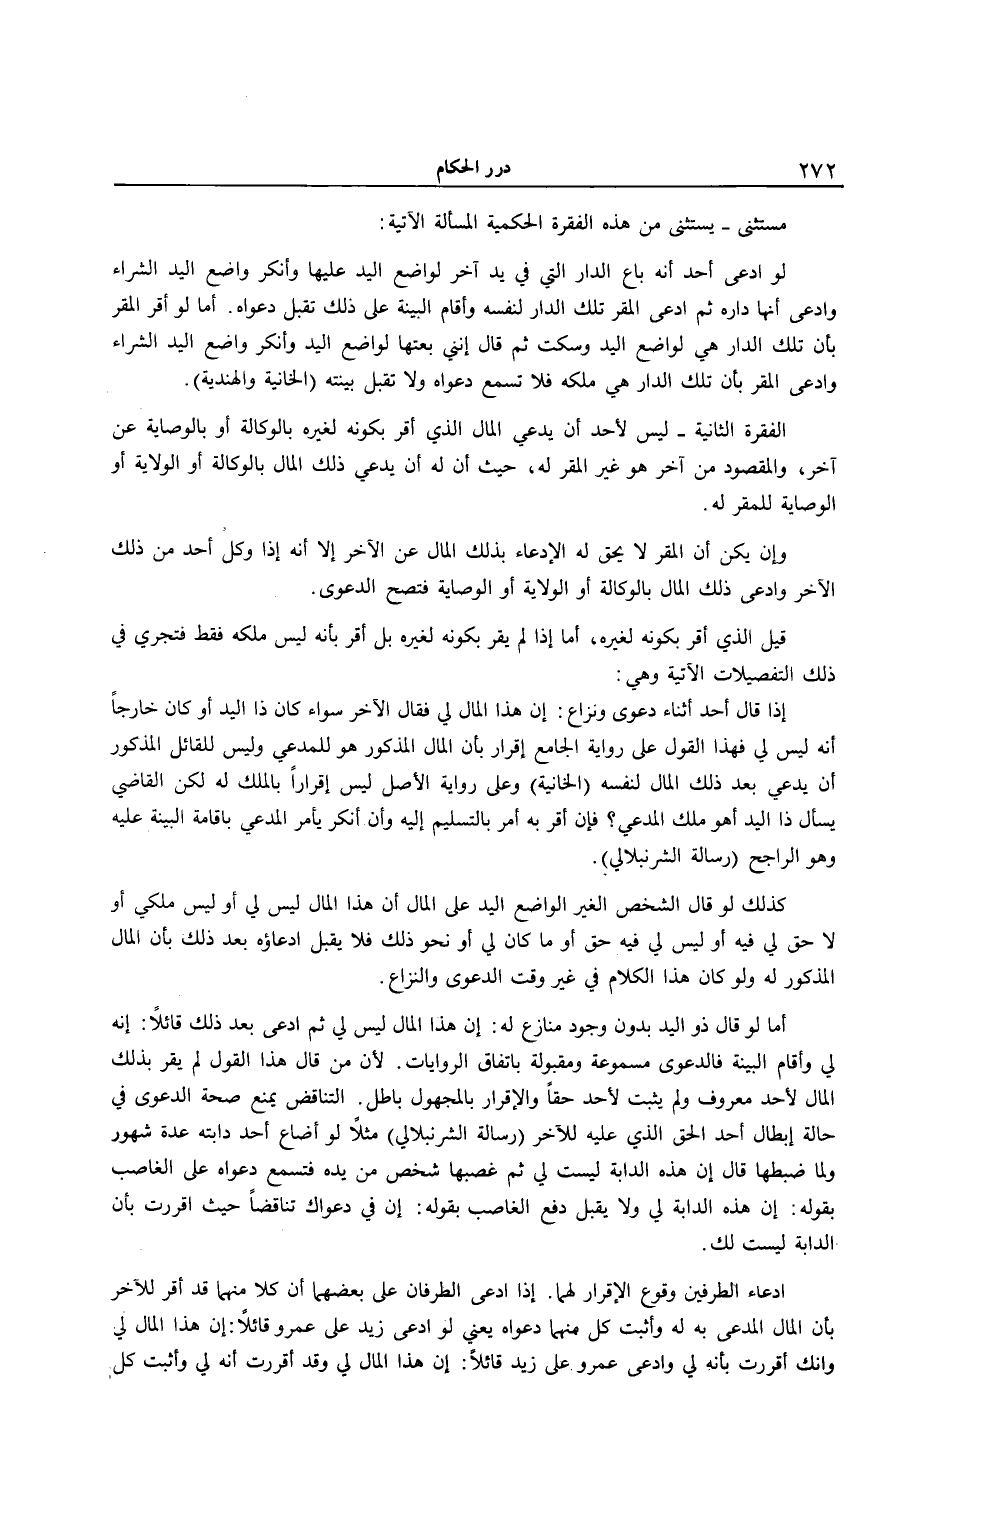 ٢٧٢
درر الحكام
مستثنى ـ يستثنى من هذه الفقرة الحكمية المسألة الآتية:
لو ادعى أحد أنه باع الدار التي في يد آخر لواضع اليد عليها وأنكر واضع اليد الشراء
وادعى أنها داره ثم ادعى المقر تلك الدار لنفسه وأقام البينة على ذلك تقبل دعواه. أما لو أقر المقر
بأن تلك الدار هي لواضع اليد وسكت ثم قال إنني بعتها لواضع اليد وأنكر واضع اليد الشراء
وادعى المقر بأن تلك الدار هي ملكه فلا تسمع دعواه ولا تقبل بينته (الخانية والهندية).
الفقرة الثانية ـ ليس لأحد أن يدعي المال الذي أقر بكونه لغيره بالوكالة أو بالوصاية عن
آخر، والمقصود من آخر هو غير المقر له، حيث أن له أن يدعي ذلك المال بالوكالة أو الولاية أو
الوصاية للمقر له.
وإن يكن أن المقر لا يحق له الإدعاء بذلك المال عن الآخر إلا أنه إذا وكل أحد من ذلك
الآخر وادعى ذلك المال بالوكالة أو الولاية أو الوصاية فتصح الدعوى.
قيل الذي أقر بكونه لغيره، أما إذا لم يقر بكونه لغيره بل أقر بأنه ليس ملكه فقط فتجري في
ذلك التفصيلات الآتية وهي:
إذا قال أحد أثناء دعوى ونزاع: إن هذا المال لي فقال الآخر سواء كان ذا اليد أو كان خارجاً
أنه ليس لي فهذا القول على رواية الجامع إقرار بأن المال المذكور هو للمدعي وليس للقائل المذكور
أن يدعي بعد ذلك المال لنفسه (الخانية) وعلى رواية الأصل ليس إقراراً بالملك له لكن القاضي
يسأل ذا اليد أهو ملك المدعي؟ فإن أقر به أمر بالتسليم إليه وأن أنكر يأمر المدعي باقامة البينة عليه
وهو الراجح (رسالة الشرنبلالي).
كذلك لو قال الشخص الغير الواضع اليد على المال أن هذا المال ليس لي أو ليس ملكي أو
لا حق لي فيه أو ليس لي فيه حق أو ما كان لي أو نحو ذلك فلا يقبل ادعاؤه بعد ذلك بأن المال
المذكور له ولو كان هذا الكلام في غير وقت الدعوى والنزاع.
أما لو قال ذو اليد بدون وجود منازع له: إن هذا المال ليس لي ثم ادعى بعد ذلك قائلاً: إنه
لي وأقام البينة فالدعوى مسموعة ومقبولة باتفاق الروايات. لأن من قال هذا القول لم يقر بذلك
المال لأحد معروف ولم يثبت لأحد حقاً والإقرار بالمجهول باطل. التناقض يمنع صحة الدعوى في
حالة إبطال أحد الحق الذي عليه للآخر (رسالة الشرنبلالي) مثلاً لو أضاع أحد دابته عدة شهور
ولما ضبطها قال إن هذه الدابة ليست لي ثم غصبها شخص من يده فتسمع دعواه على الغاصب
بقوله: إن هذه الدابة لي ولا يقبل دفع الغاصب بقوله: إن في دعواك تناقضاً حيث اقررت بأن
الدابة ليست لك.
ادعاء الطرفين وقوع الإقرار لهما. إذا ادعى الطرفان على بعضهما أن كلا منهما قد أقر للآخر
بأن المال المدعى به له وأثبت كل منهما دعواه يعني لو ادعى زيد على عمرو قائلاً:إن هذا المال لي
وانك أقررت بأنه لي وادعى عمرو على زيد قائلاً: إن هذا المال لي وقد أقررت أنه لي وأثبت كل